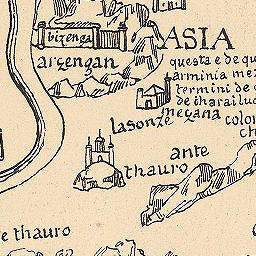 bizenga
ASIA
arzengan
questa e de qu
arminia mez
termini de
de iharailuc
megana
lasonze
color
ch
ante
thauro
e thauro